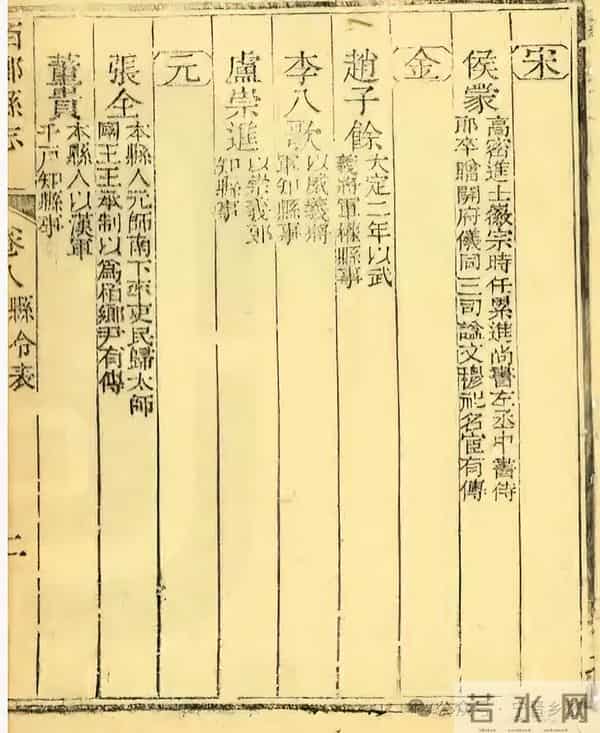 宋
侯蒙
高密進士徽宗時任累進尚書左丞中書侍
郎卒贈開府儀同三司諡文穆祀名宦有傳
金
趙子餘
大定二年以武
義將軍權縣事
李八歌
以威義將
軍知縣事
盧崇進
以崇義
知縣事
元
張全
本縣人元師南下率吏民歸太師
國王王承制以爲栢鄉尹有傳
董貴
本縣人以漢軍
千戶知縣事
鄉縣志
卷八
縣令表
二
若水网